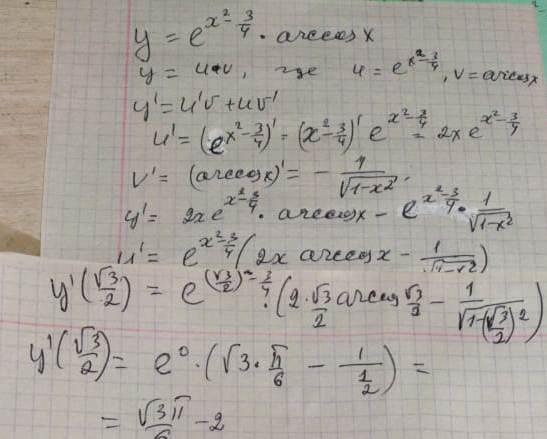 y = e^{x²-3/4} · arccos x
y = u·v, где u = e^{x²-3/4}, v = arccos x
y' = u'v + uv'
u' = (e^{x²-3/4})' = (x²-3/4)' e^{x²-3/4} = 2x e^{x²-3/4}
v' = (arccos x)' = - 1/√(1-x²).
y' = 2x e^{x²-3/4} · arccos x - e^{x²-3/4} · 1/√(1-x²)
y' = e^{x²-3/4} (2x arccos x - 1/√(1-x²))
y'(√3/2) = e^{(√3/2)²-3/4} · (2·√3/2 arccos √3/2 - 1/√(1-(√3/2)²))
y'(√3/2) = e⁰ · (√3 · π/6 - 1/(1/2)) =
= √3π/6 - 2